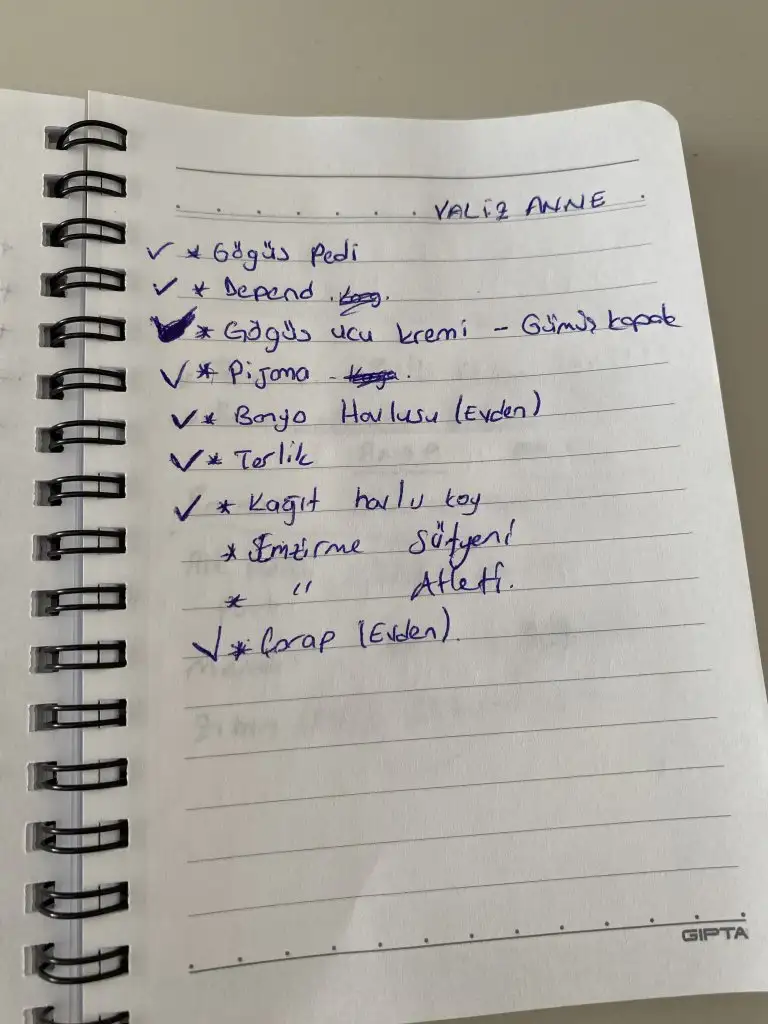 VALİZ ANNE
✓ * Göğüs pedi
✓ * Depend.
✓ * Göğüs ucu kremi - Gümüş kapak
✓ * Pijama -
✓ * Banyo Havlusu (Evden)
✓ * Terlik
✓ * Kağıt havlu koy
* Emzirme Sütyeni
* " Atleti.
✓ * Çorap (Evden).
GIPTA